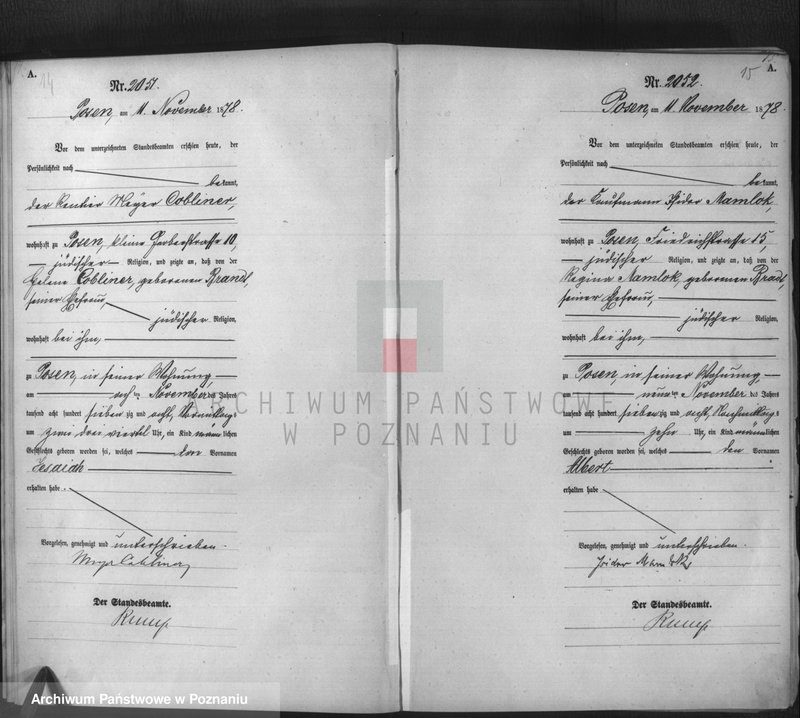 A.
14
Nr. 2051.
Posen, am 11. November 1878.
Vor dem unterzeichneten Standesbeamten erschien heute, der
Persönlichkeit nach
bekannt,
der Rentier Meyer Cobliner,
wohnhaft zu Posen, kleine Gerberstrasse 10,
jüdischer Religion, und zeigte an, daß von der
Helene Cobliner, geborenen Brandt,
seiner Ehefrau,
jüdischer Religion,
wohnhaft bei ihm,
zu Posen, in seiner Wohnung,
am November des Jahres
tausend acht hundert siebenzig und acht, Vormittags
um zwei drei viertel Uhr, ein Kind männlichen
Geschlechts geboren worden sei, welches den Vornamen
Jesaiah
erhalten habe.
Vorgelesen, genehmigt und unterschrieben.
Meyer Cobliner
Der Standesbeamte.
15
A.
Nr. 2052.
Posen, am 11. November 1878.
Vor dem unterzeichneten Standesbeamten erschien heute, der
Persönlichkeit nach
bekannt,
der Kaufmann Isidor Mamlok,
wohnhaft zu Posen, Friedrichstrasse 15,
jüdischer Religion, und zeigte an, daß von der
Regina Mamlok, geborenen Brodt,
seiner Ehefrau,
jüdischer Religion,
wohnhaft bei ihm,
zu Posen, in seiner Wohnung,
am neunten November des Jahres
tausend acht hundert siebenzig und acht, Nachmittags
um zehn Uhr, ein Kind männlichen
Geschlechts geboren worden sei, welches den Vornamen
Albert
erhalten habe
Vorgelesen, genehmigt und unterschrieben.
Isidor Mamlok
Der Standesbeamte.
ARCHIWUM PAŃSTWOWE
W POZNANIU
Archiwum Państwowe w Poznaniu